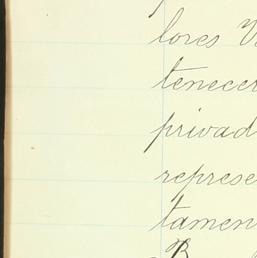 lores V
tenecer
privad
represe
tamen
B